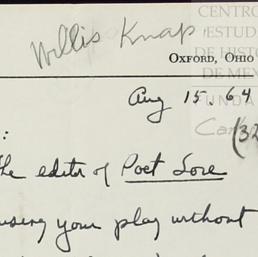 CENTRO
ESTUD
DE HISTO
DE ME
Willis Knap
OXFORD, OHIO
UNDA
Aug 15, 64
(32
:
the editor of Poet Lore
using your play without